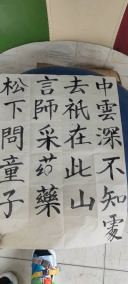 松下問童子
言師采药藥
去祇在此山
中雲深不知處